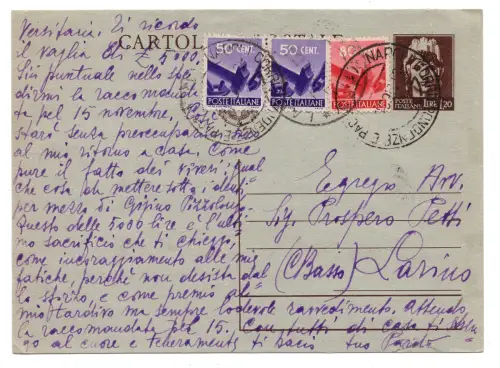 versitaria. Ti ricordo
il vaglia di £ 5000.
Sii puntuale nello spe-
dirmi la raccomandata
pel 15 novembre,
starò senza preoccupazione
al mio ritorno a casa. Come
pure il fatto dei viveri, qual
che cosa da mettere sotto i denti
per mezzo di Gipino Pizzolongo
Questo delle 5000 lire è l'ulti
mo sacrificio che ti chieggo,
come incoraggiamento alle mie
fatiche, perchè non desista dal
lo sforzo, e come premio al
mio tardivo ma sempre lodevole ravvedimento. Attendo
la raccomandata pel 15. Con tutti di casa ti strin-
go al cuore e teneramente ti bacio tuo
CARTOLINA POSTALE
50 CENT.
POSTE ITALIANE
50 CENT.
POSTE ITALIANE
80
POSTE ITALIANE
POSTE
ITALIANE
LIRE 1,20
NAPOLI
CORRISPONDENZE E PACCHI
Egregio Avv.
Sig. Prospero Petti
(Basso) Larino